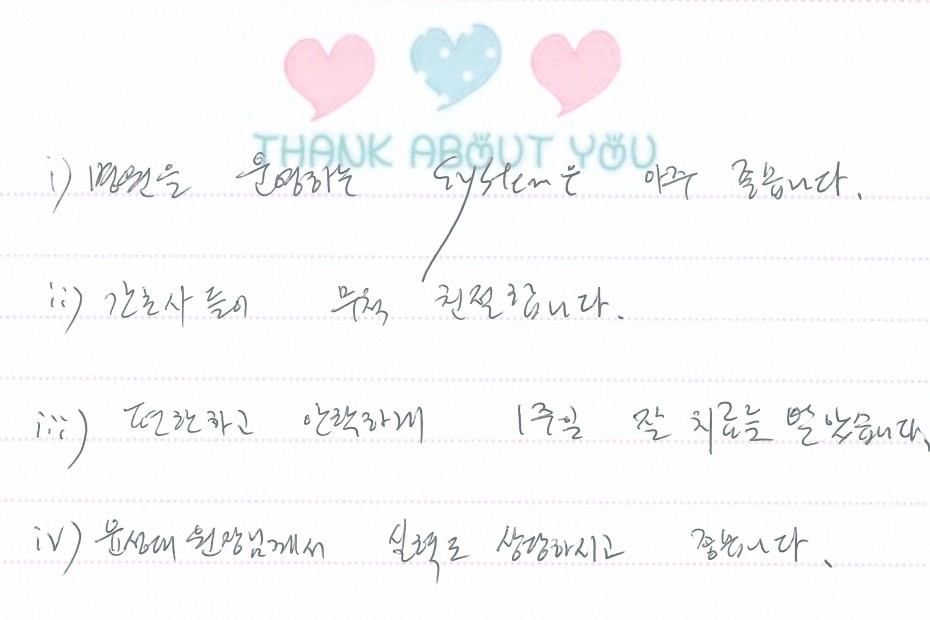 THANK ABOUT YOU
i) 병원을 운영하는 System은 아주 좋습니다.
ii) 간호사들이 무척 친절합니다.
iii) 편안하고 안락하게 1주일 잘 치료를 받았습니다.
iv) 윤성대 원장님께서 실력도 상당하시고 좋습니다.